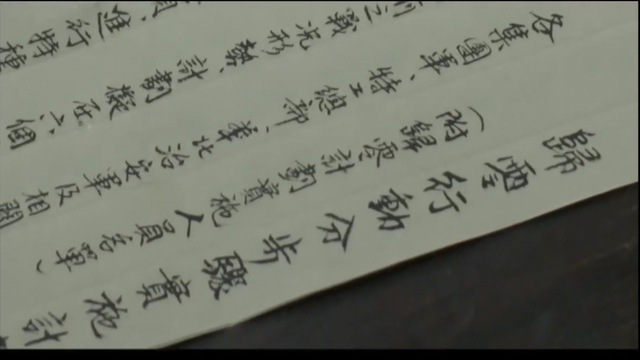 歸雲行動分步驟實施計
（附歸雲計劃實施人員名單）
各集團軍、特工總部、華北治安軍及相關
戰況形勢、計劃擬在六個
進行特種